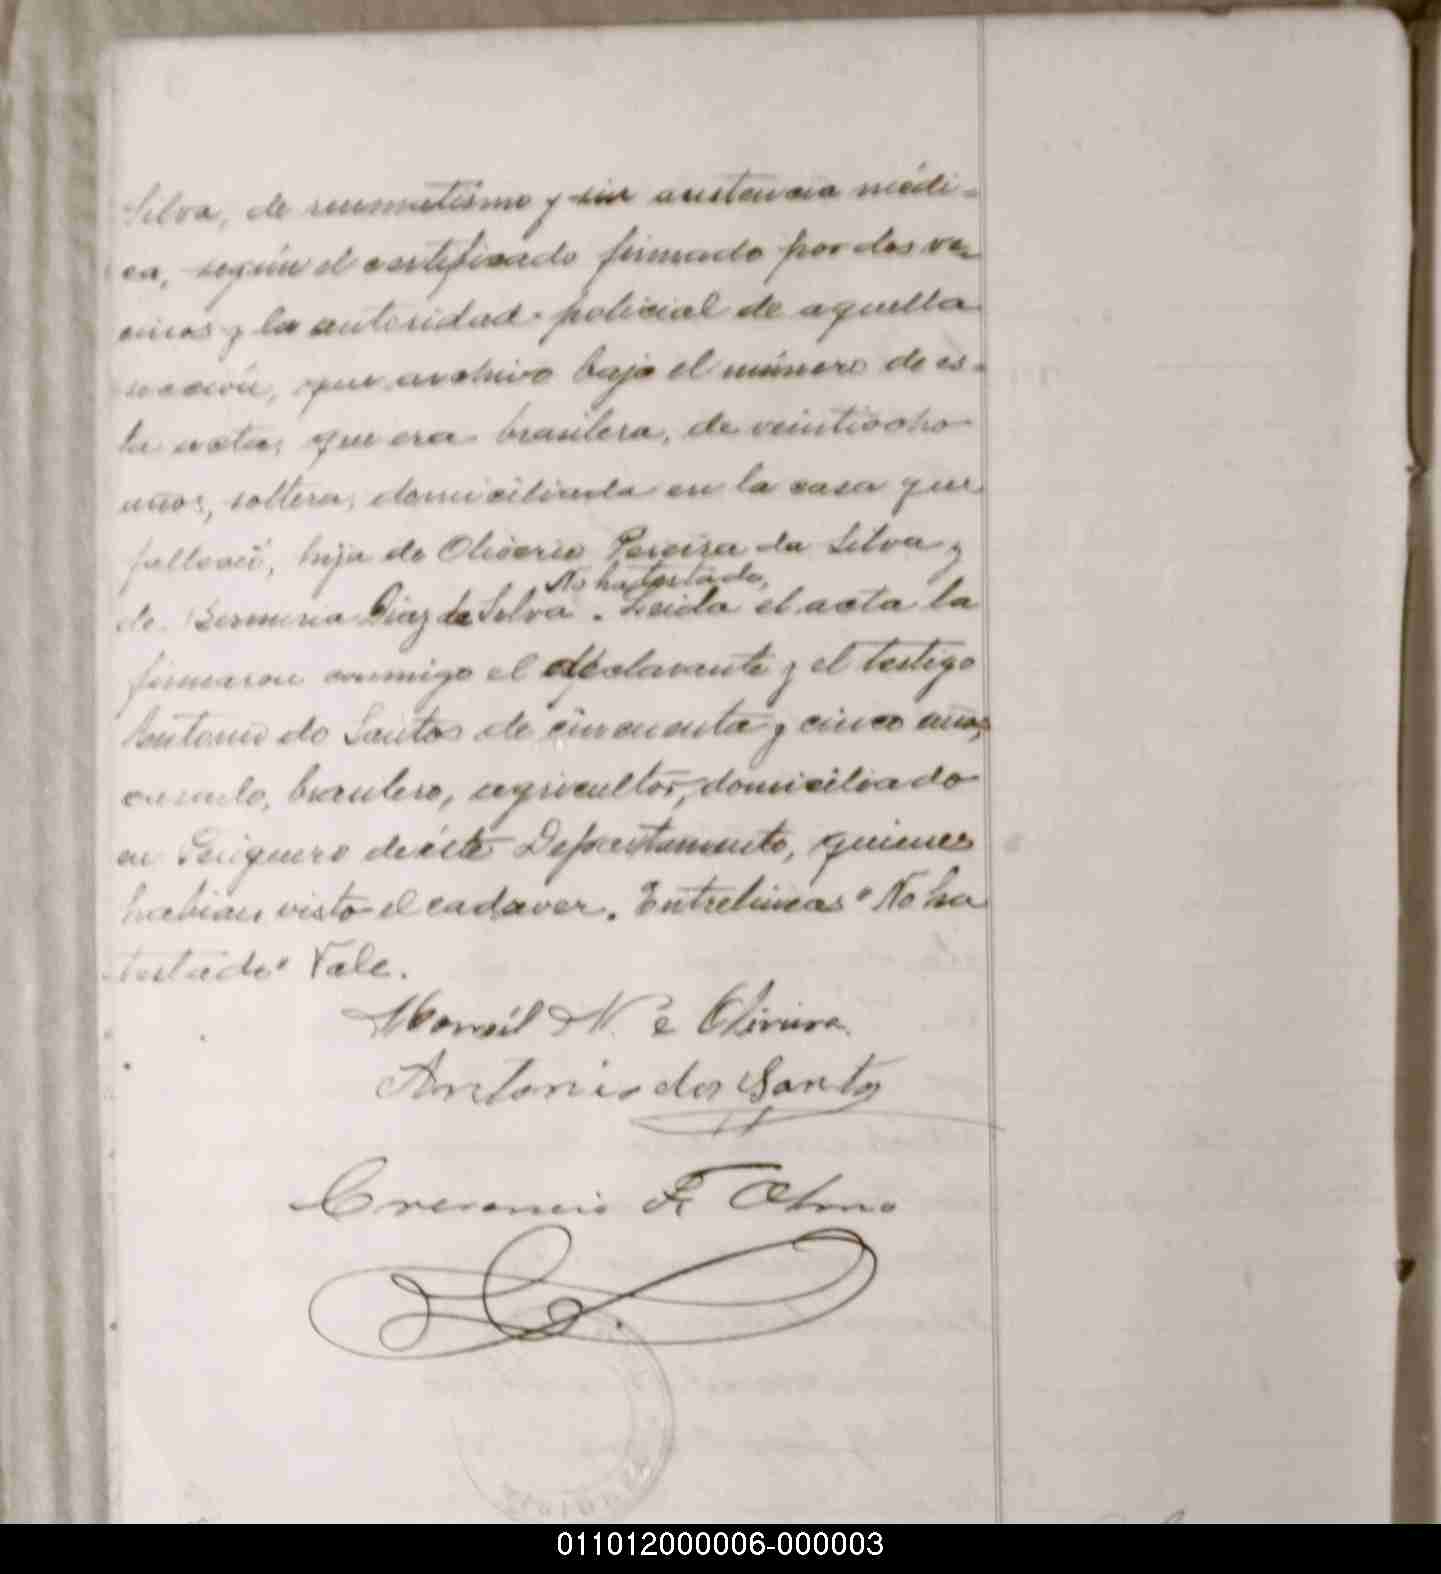 Silva, de reumatismo y sin asistencia médi-
ca, según el certificado firmado por dos ve-
cinos y la autoridad policial de aquella
sección, que archivo bajo el número de es-
ta acta; que era brasilera, de veintiocho
años, soltera, domiciliada en la casa que
falleció, hija de Oliverio Pereira da Silva y
No ha testado,
de Diaz da Silva. Leida el acta la
firmaron conmigo el declarante y el testigo
Antonio do Santos de cincuenta y cinco años,
casado, brasilero, agricultor, domiciliado
en de éste Departamento, quienes
habian visto el cadaver. Entrelineas "No ha
testado" Vale.
N. e Oliveira
Antonio dos Santos
F. Olmo
011012000006-000003